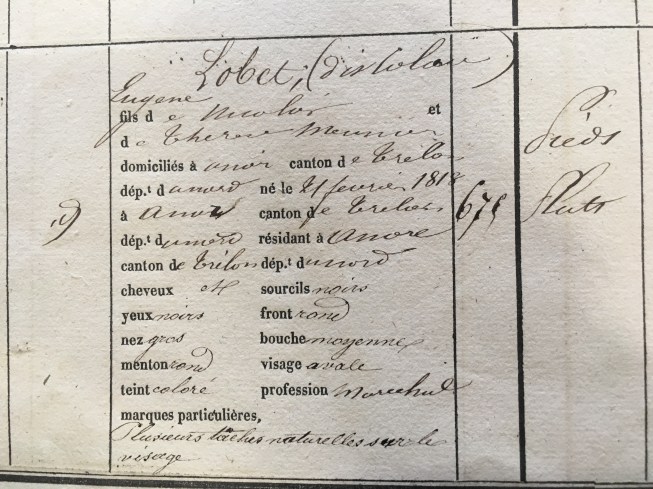 Lobet, (dit Colau)
Eugène
fils de Nicolas et
de Therese Meunier
domiciliés à anor canton de Trélon
dép.t du nord né le 21 fevrier 1818
à Anor canton de Trélon 675
19
dép.t du nord résidant à Anore
canton de Trélon dép.t du nord
cheveux et sourcils noirs
yeux noirs front rond
nez gros bouche moyenne
menton rond visage avale
teint coloré profession Marechal
marques particulières,
Plusieurs tâches naturelles sur le
visage
Pieds
Plats